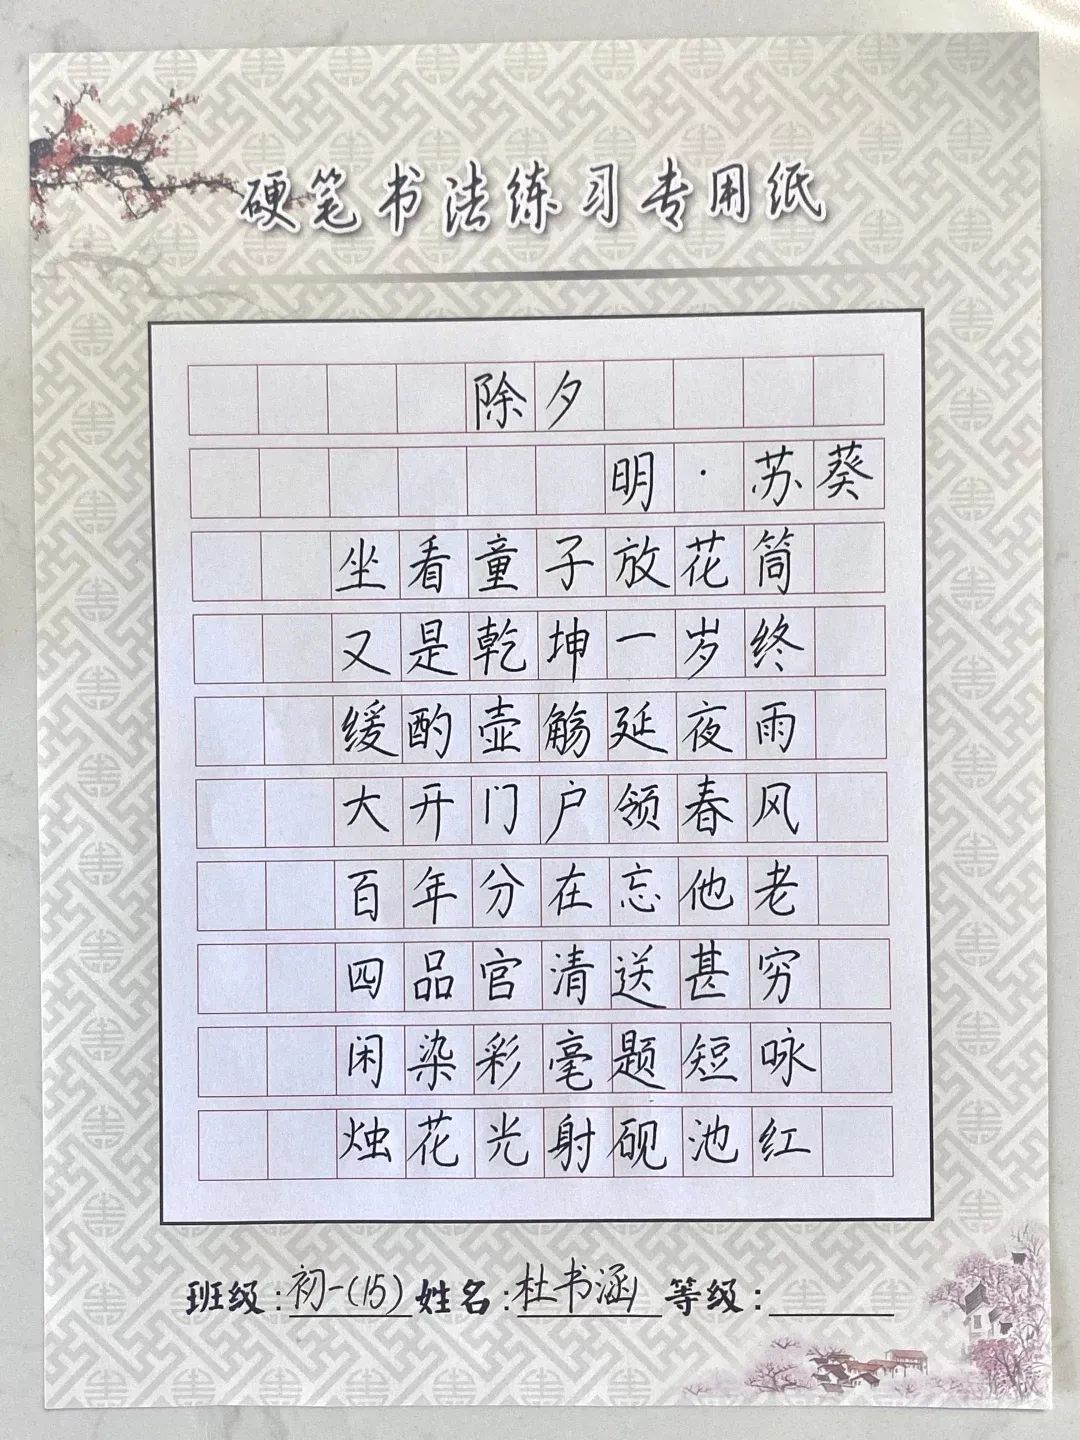 硬笔书法练习专用纸
除夕
明·苏葵
坐看童子放花筒
又是乾坤一岁终
缓酌壶觞延夜雨
大开门户领春风
百年分在忘他老
四品官清送甚穷
闲染彩毫题短咏
烛花光射砚池红
班级:初一(15) 姓名:杜书涵 等级: